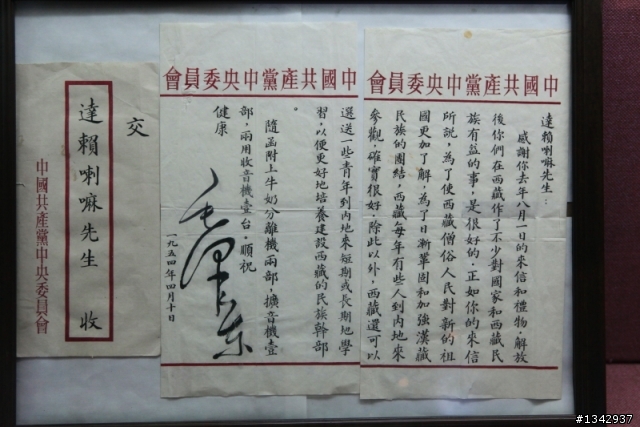 中國共產黨中央委員會
達賴喇嘛先生：
感謝你去年八月一日的來信和禮物，解放
後你們在西藏作了不少對國家和西藏民
族有益的事，是很好的，正如你的來信
所說，為了使西藏僧俗人民對新的祖
國更加了解，為了日漸鞏固和加強漢藏
民族的團結，西藏每年有些人到內地來
參觀，確實很好。除此以外，西藏還可以
中國共產黨中央委員會
選送一些青年到內地來短期或長期地學
習，以便更好地培養建設西藏的民族幹部
隨函附上牛奶分離機兩部，擴音機壹
部，兩用收音機壹台。順祝
健康
毛澤東
一九五四年四月十日
交
達賴喇嘛先生 收
中國共產黨中央委員會
#1342937